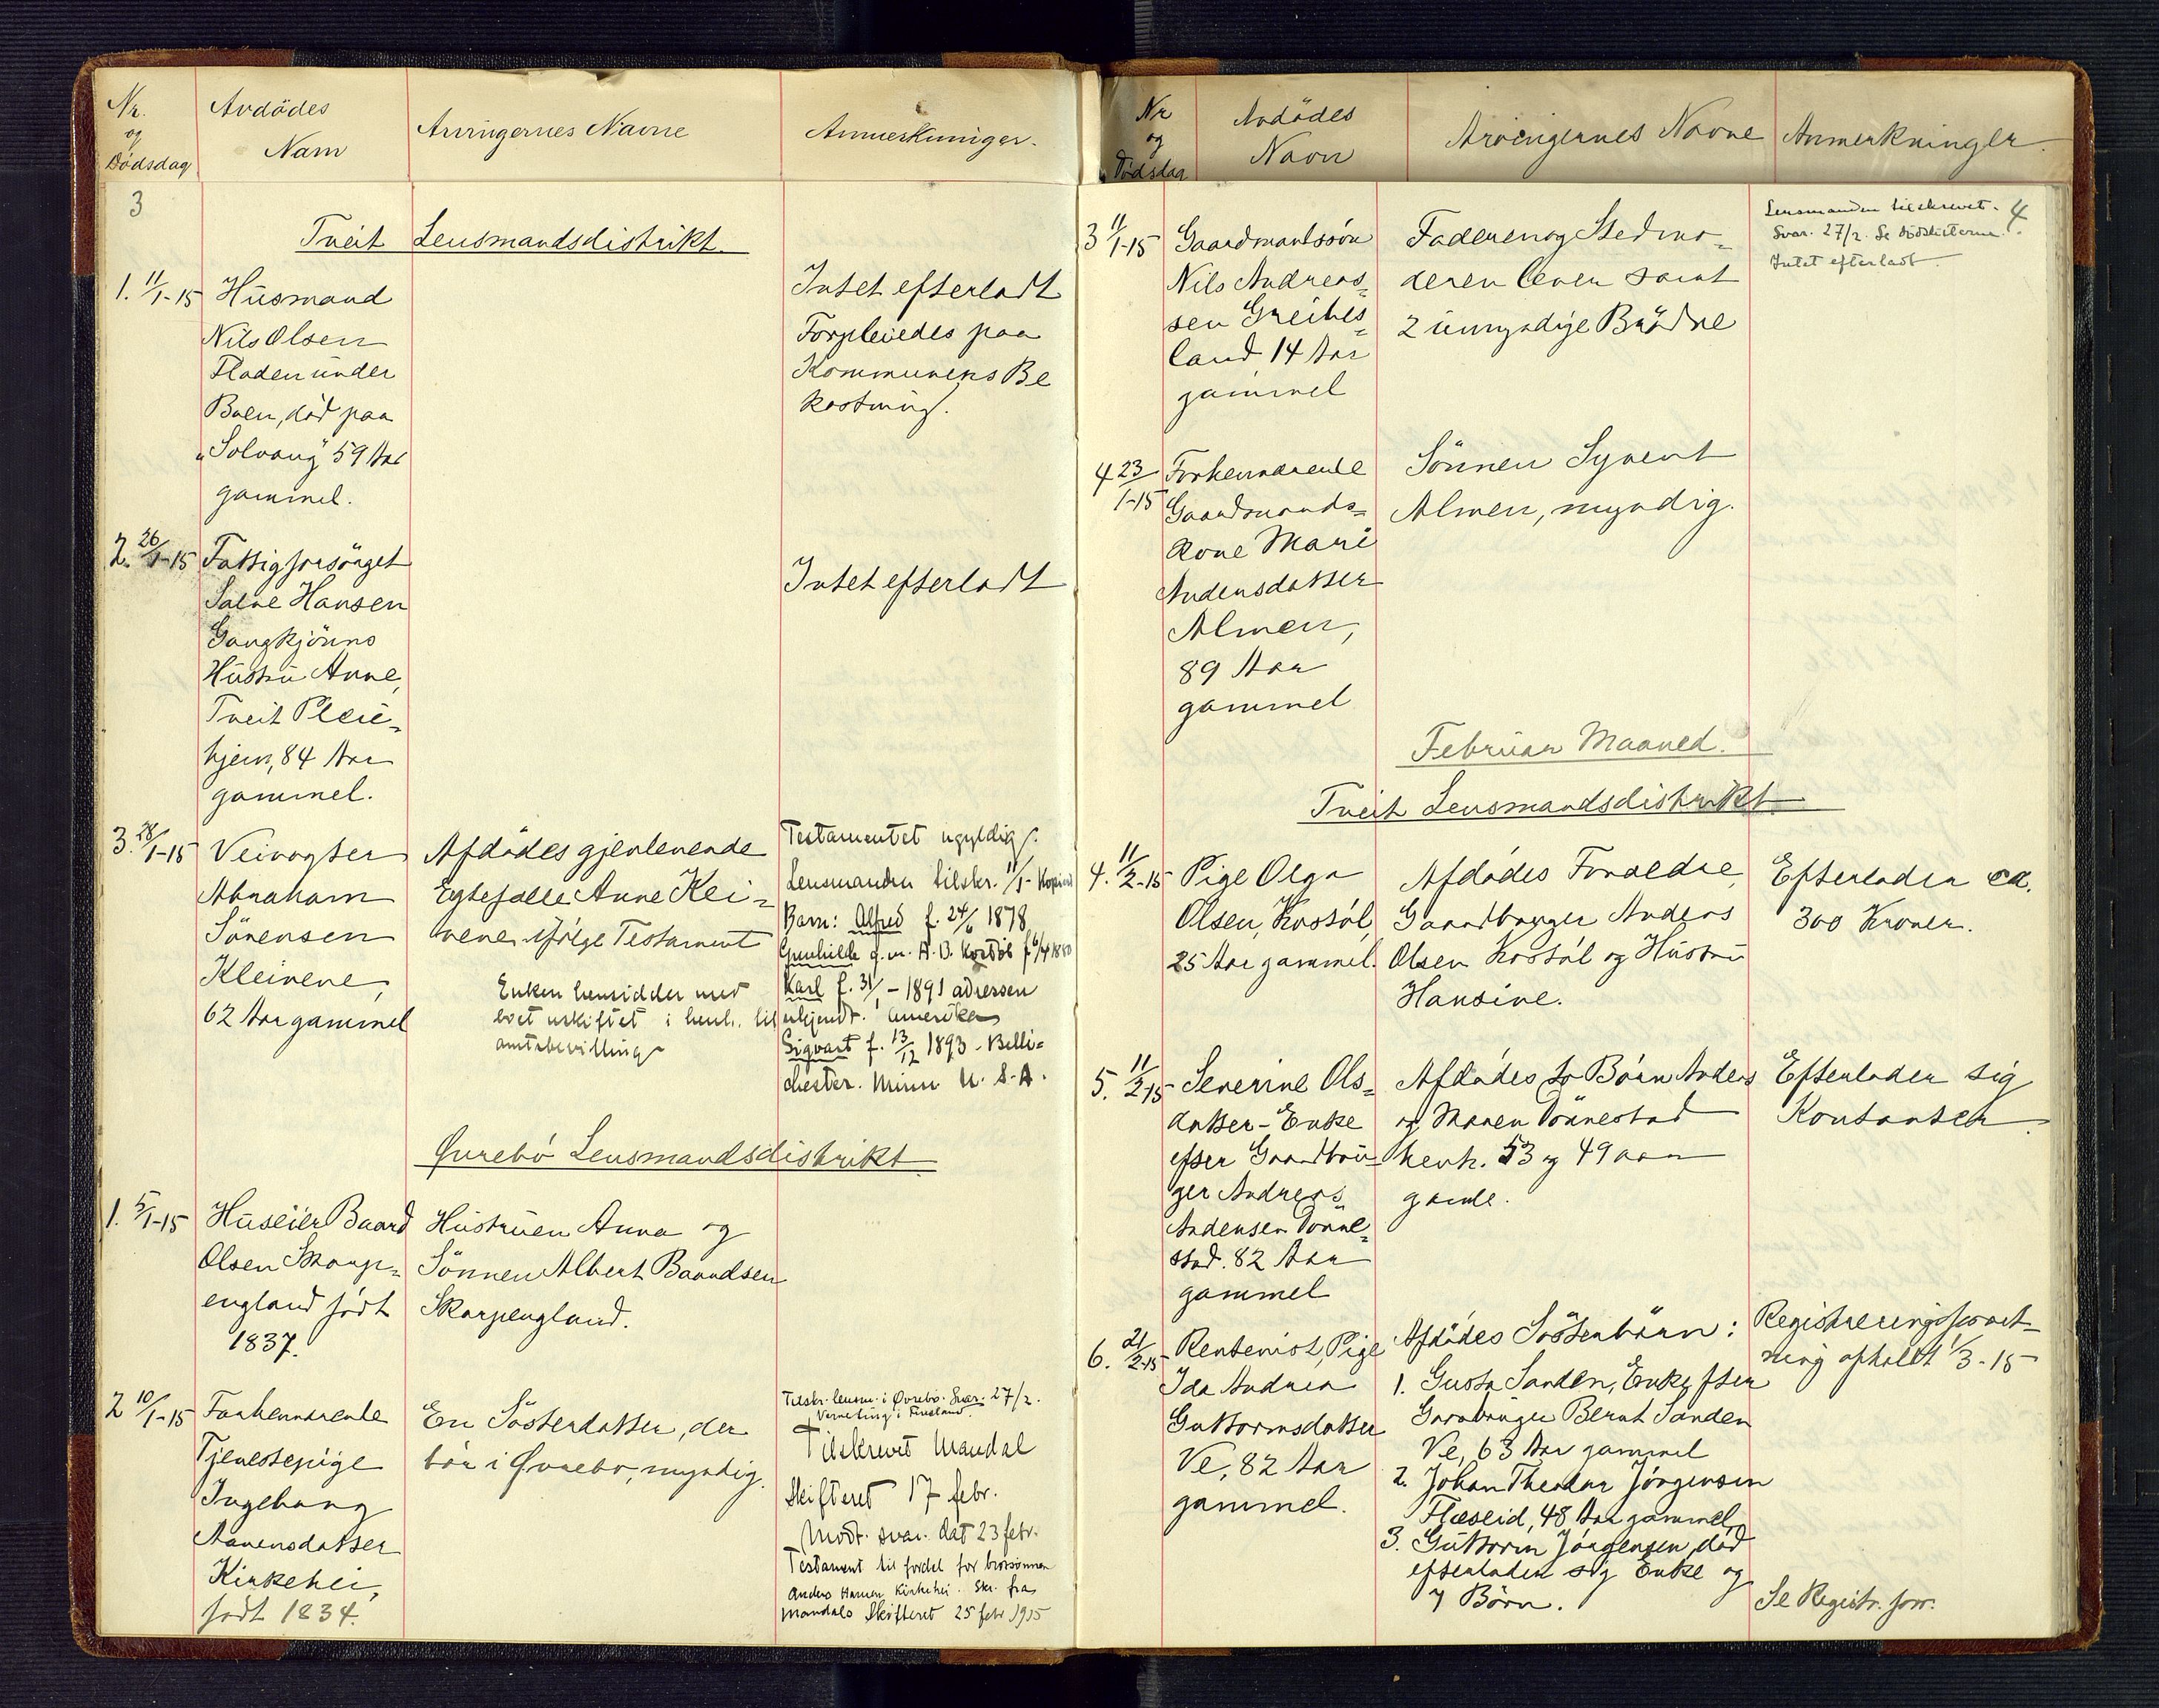 Nr.
og
Dödsdag
Avdödes
Navn
Arvingernes Navne
Anmerkninger.
3
Tveit Lensmandsdistrikt.
1. 11/1-15
Husmand
Nils Olsen
Fladen under
Boen, död paa
"Solvang" 59 Aar
gammel.
Intet efterladt
Forpleiedes paa
Kommunens Be
kostning.
2. 26/1-15
Fattigforsörget
Salve Hansen
Gangkjönns
Hustru Anne,
Tveit Pleie-
hjem, 84 Aar
gammel.
Intet efterladt
3. 28/1-15
Veivogter
Abraham
Sörensen
Kleivene,
62 Aar gammel
Afdödes gjenlevende
Egtefælle Anne Klei-
vene ifölge Testament
Enken hensidder med
boet uskiftet i henh. til
amtsbevilling
Testamentet ugyldig.
Lensmanden tilskr. 11/1- Kopi
Barn: Alfred f. 24/6 1878,
Gunhilde g.m. A. B. Kostöl f. 6/4 1880
Karl f. 31/1 - 1891 adressen
ukjendt. Amerika
Sigvart f. 13/12 1893 - Belli-
chester. Minn U. S. A.
Øvrebö Lensmandsdistrikt
1. 5/1-15
Huseier Baard
Olsen Skarp-
england födt
1837.
Hustruen Anna og
Sönnen Albert Baardsen
Skarpengland.
2 10/1-15
Forhenværende
Tjenestepige
Ingeborg
Aanensdatter
Kirkehei,
födt 1834.
En Sösterdatter, der
bor i Øvrebo, myndig.
Tilskr. lensm. i Øvrebö. Svar. 27/2.
Verneting i Finsland.
Tilskrevet Mandal
Skifteret 17 febr.
Modt. svar. dat 23 febr.
Testament til fordel for brorsönnen
Anders Hansen Kirkehei. Skr. fra
Mandals Skifteret 25 febr 1915
Nr
og
Dödsdag
Avdödes
Navn
Arvingernes Navne
Anmerkninger.
4
3 11/1-15
Gaardmandssön
Nils Andreas-
sen Greibes-
land 14 Aar
gammel
Faderen og Stedmo-
deren lever samt
2 umyndige Brödre
Lensmanden tilskrevet.
Svar. 27/2. Se dödslisterne.
Intet efterladt
4 23/1-15
Forhenværende
Gaardmands-
kone Mari
Andersdatter
Almen,
89 Aar
gammel
Sönnen Syvert
Almen, myndig.
Februar Maaned.
Tveit Lensmandsdistrikt
4. 11/2-15
Pige Olga
Olsen, Kostöl,
25 Aar gammel.
Afdödes Forældre,
Gaardbruger Anders
Olsen Kostöl og Hustru
Hansine.
Efterlader ca.
300 Kroner.
5. 11/2-15
Severine Ols-
datter - Enke
efter Gaardbru-
ger Andreas
Andersen Tönne-
stad. 82 Aar
gammel
Afdödes to Börn Anders
og Maren Tönnestad
henh. 53 og 49 aar
gamle.
Efterlader sig
Kontanter.
6. 21/2-15
Rentenist, Pige
Ida Andrea
Guttormsdatter
Ve, 82 Aar
gammel.
Afdödes Sösterbörn:
1. Gusta Sanden, Enke efter
Gaardbruger Bernt Sanden
Ve, 63 Aar gammel
2. Johan Theodor Jörgensen
Flaeseid, 48 Aar gammel,
3. Guttorm Jörgensen, död
efterlader sig Enke og
7 Börn.
Registreringsforret-
ning afholdt 1/3-15
Se Registr. forr.